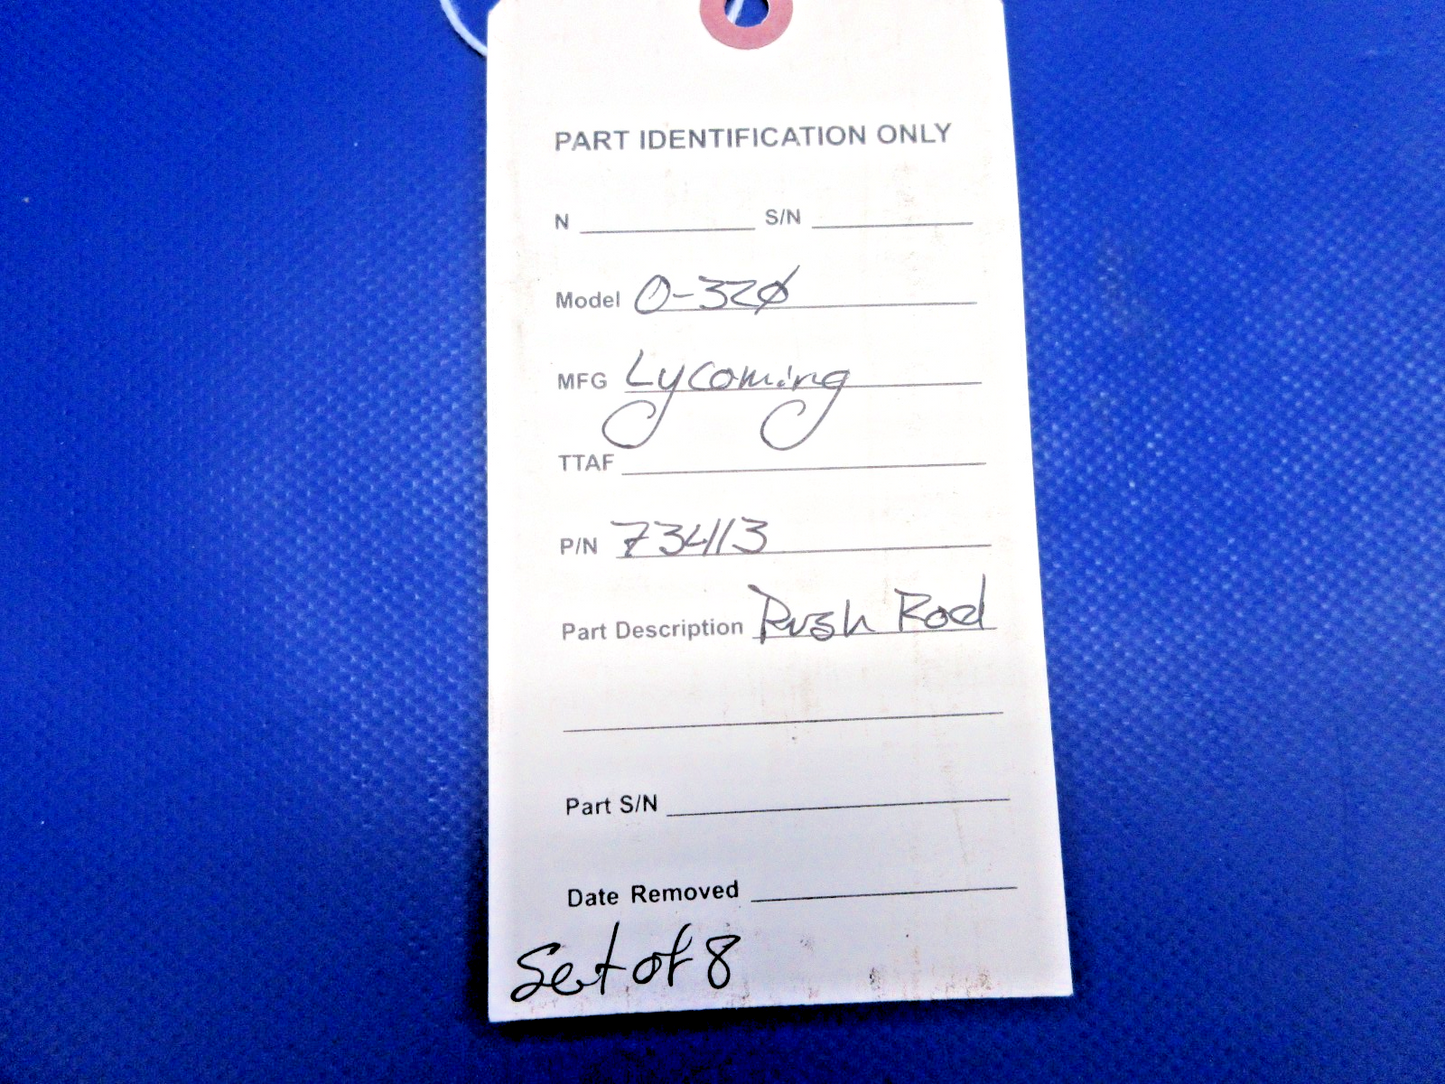 PART IDENTIFICATION ONLY
N S/N
Model O-320
MFG Lycoming
TTAF
P/N 73413
Part Description Push Rod
Part S/N
Date Removed
Set of 8